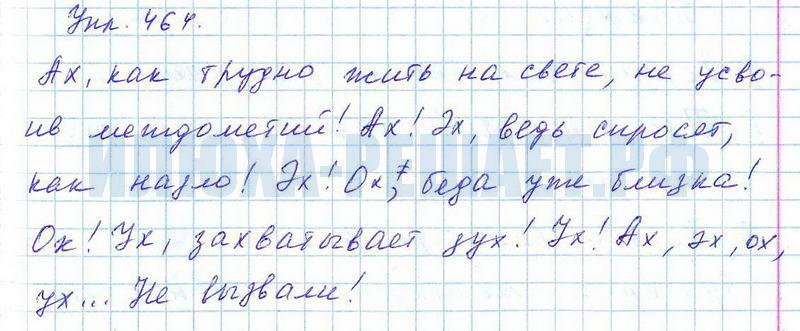 Упр. 464.
Ах, как трудно жить на свете, не усво-
ив междометий! Ах! Эх, ведь спросят,
как назло! Эх! Ох, беда уже близка!
Ох! Ух, захватывает дух! Ух! Ах, эх, ох,
ух... Не вызвали!
ИЛЮХА-РЕШАЕТ.РФ